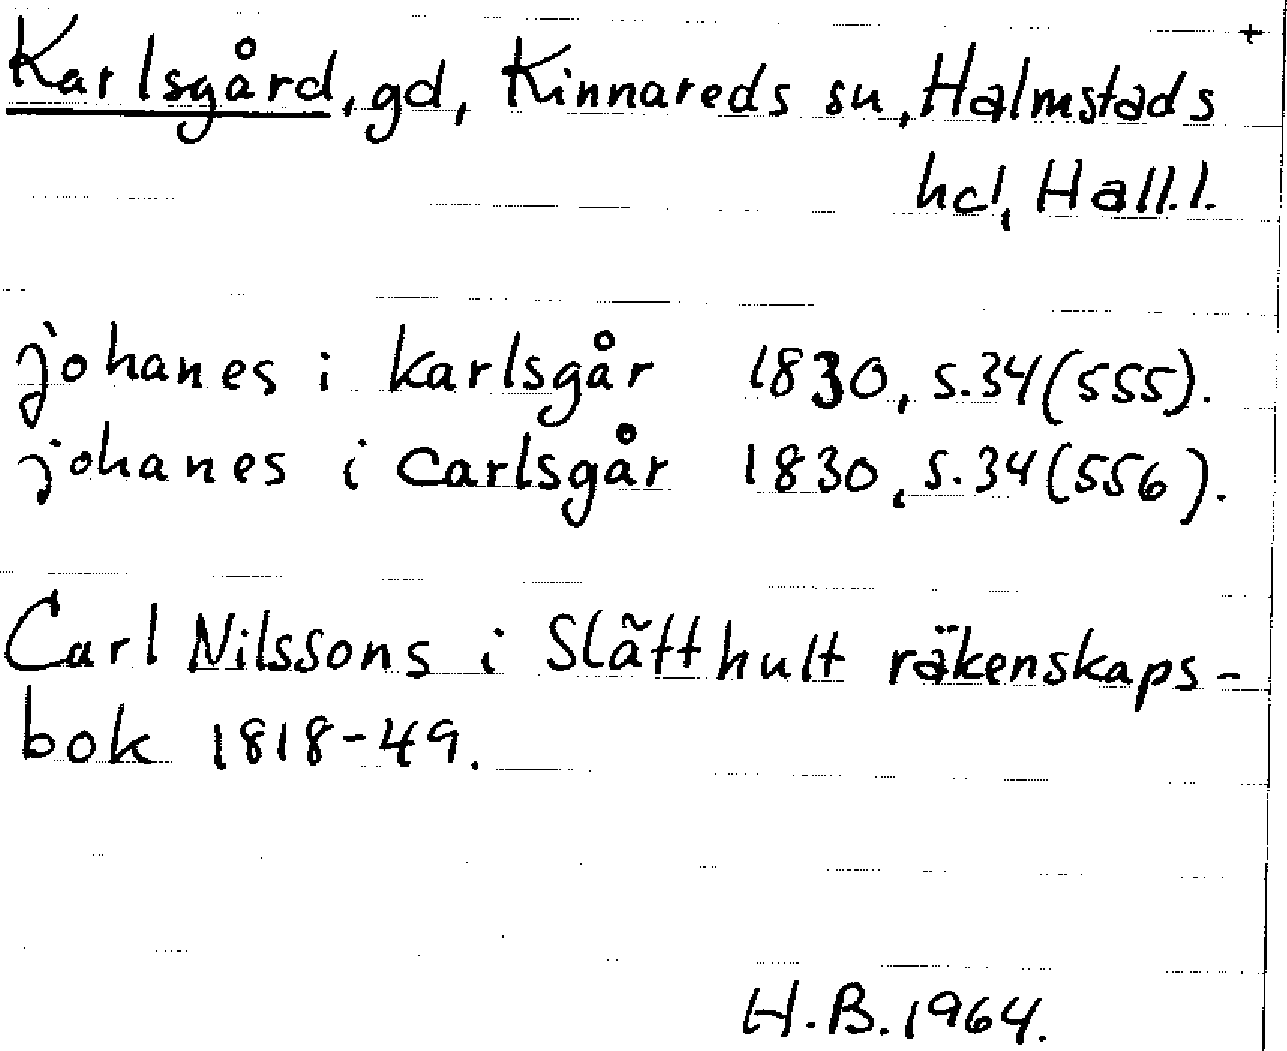 +
Karlsgård, gd, Kinnareds sn, Halmstads
hd, Hall.l.
johanes i karlsgår 1830, s.34(555).
johanes i Carlsgår 1830, s.34(556).
Carl Nilssons i Slätthult räkenskaps-
bok 1818-49.
H.B. 1964.